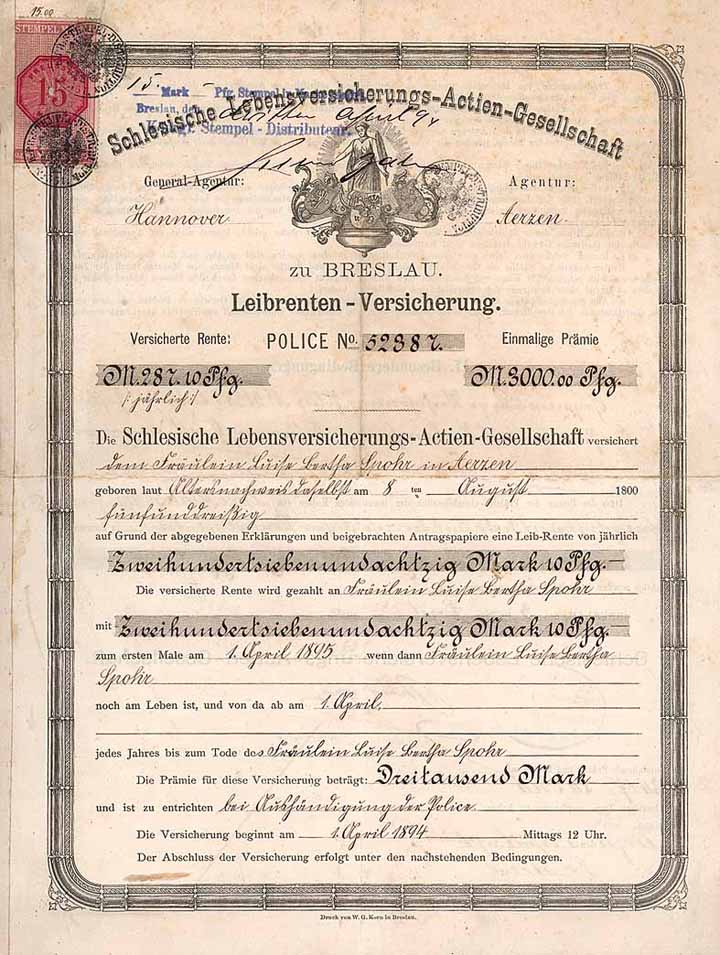 15.00
STEMPEL
15
15 Mark — Pfg. Stempel
Breslau, den dritten April 94
Königl. Stempel-Distributeur.
Schlesische Lebensversicherungs-Actien-Gesellschaft
General-Agentur: Agentur:
Hannover Aerzen
zu BRESLAU.
Leibrenten-Versicherung.
Versicherte Rente: POLICE No. 52387. Einmalige Prämie
M. 287. 10 Pfg. M. 3000.00 Pfg.
/: jährlich :/
Die Schlesische Lebensversicherungs-Actien-Gesellschaft versichert
dem Fräulein Luise Bertha Spohr in Aerzen
geboren laut Altersnachweis daselbst am 8ten August 1800
fünfunddreißig
auf Grund der abgegebenen Erklärungen und beigebrachten Antragspapiere eine Leib-Rente von jährlich
Zweihundertsiebenundachtzig Mark 10 Pfg.
Die versicherte Rente wird gezahlt an Fräulein Luise Bertha Spohr
mit Zweihundertsiebenundachtzig Mark 10 Pfg.
zum ersten Male am 1. April 1895 wenn dann Fräulein Luise Bertha
Spohr
noch am Leben ist, und von da ab am 1. April.
jedes Jahres bis zum Tode des Fräulein Luise Bertha Spohr
Die Prämie für diese Versicherung beträgt: Dreitausend Mark
und ist zu entrichten bei Aushändigung der Police.
Die Versicherung beginnt am 1. April 1894 Mittags 12 Uhr.
Der Abschluss der Versicherung erfolgt unter den nachstehenden Bedingungen.
Druck von W. G. Korn in Breslau.